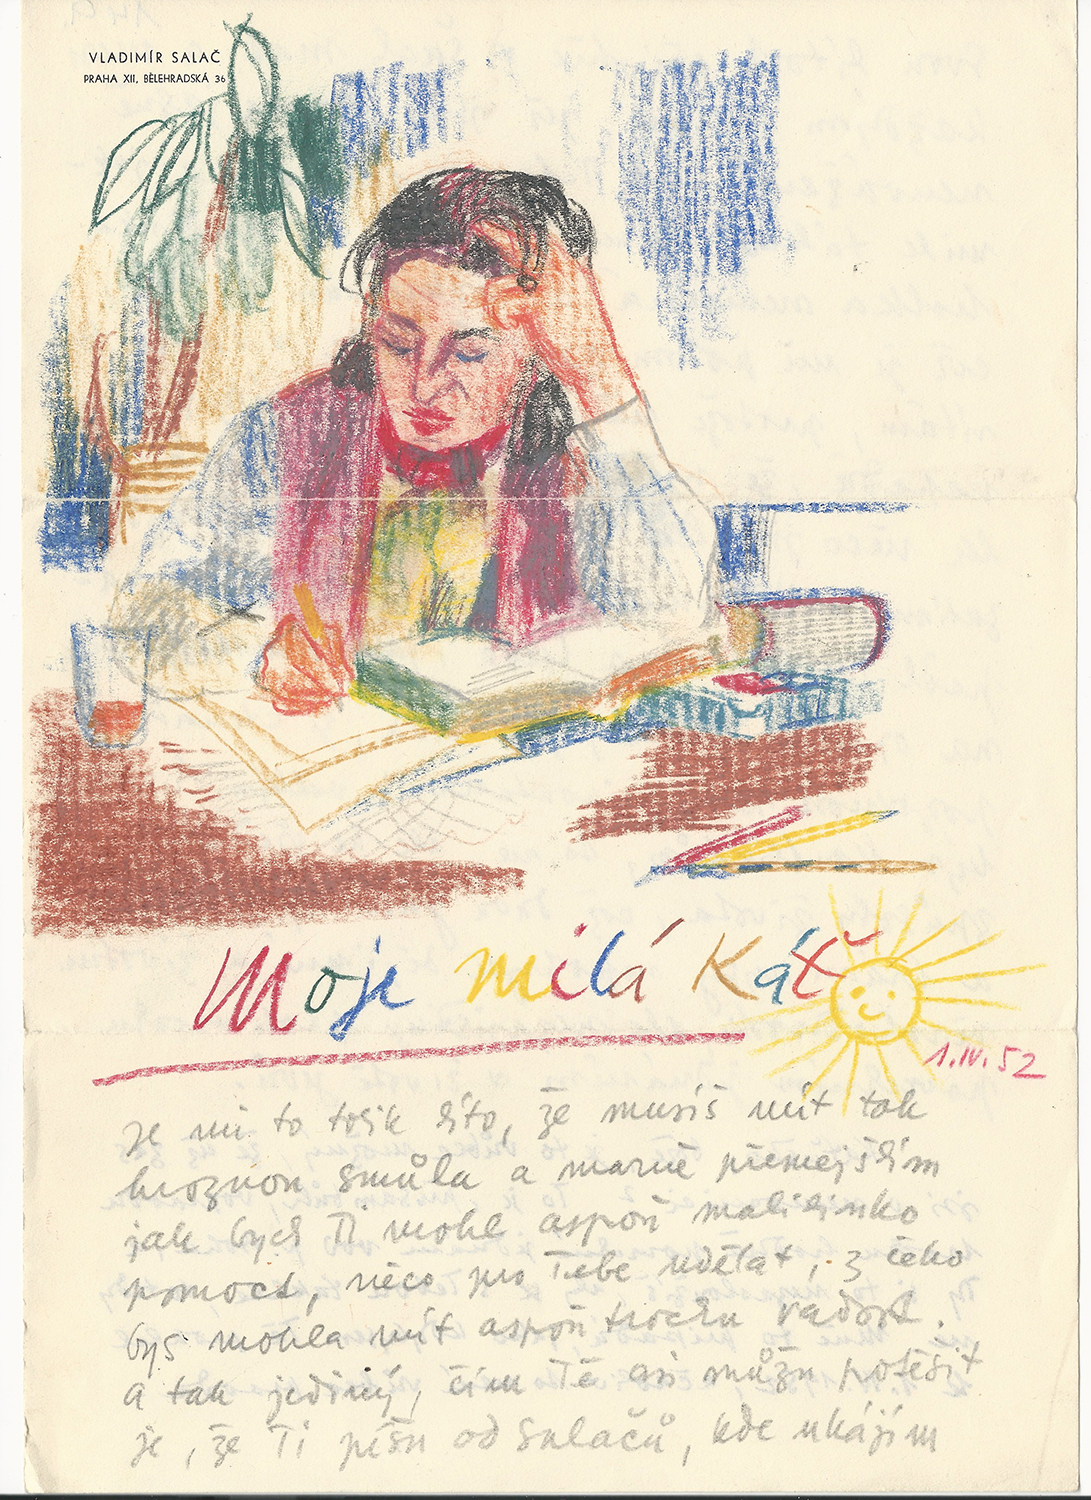 VLADIMÍR SALAČ
PRAHA XII, BĚLEHRADSKÁ 36
Moje milá Káť
1.IV.52
Je mi to tolik líto, že musíš mít tak
hroznou smůlu a marně přemejšlím
jak bych Ti mohl aspoň malilinko
pomoct, něco pro Tebe udělat, z čeho
bys mohla mít aspoň trochu radost.
A tak jediný, čím Tě asi můžu potěšit
je, že Ti píšu od Salačů, kde ukájím